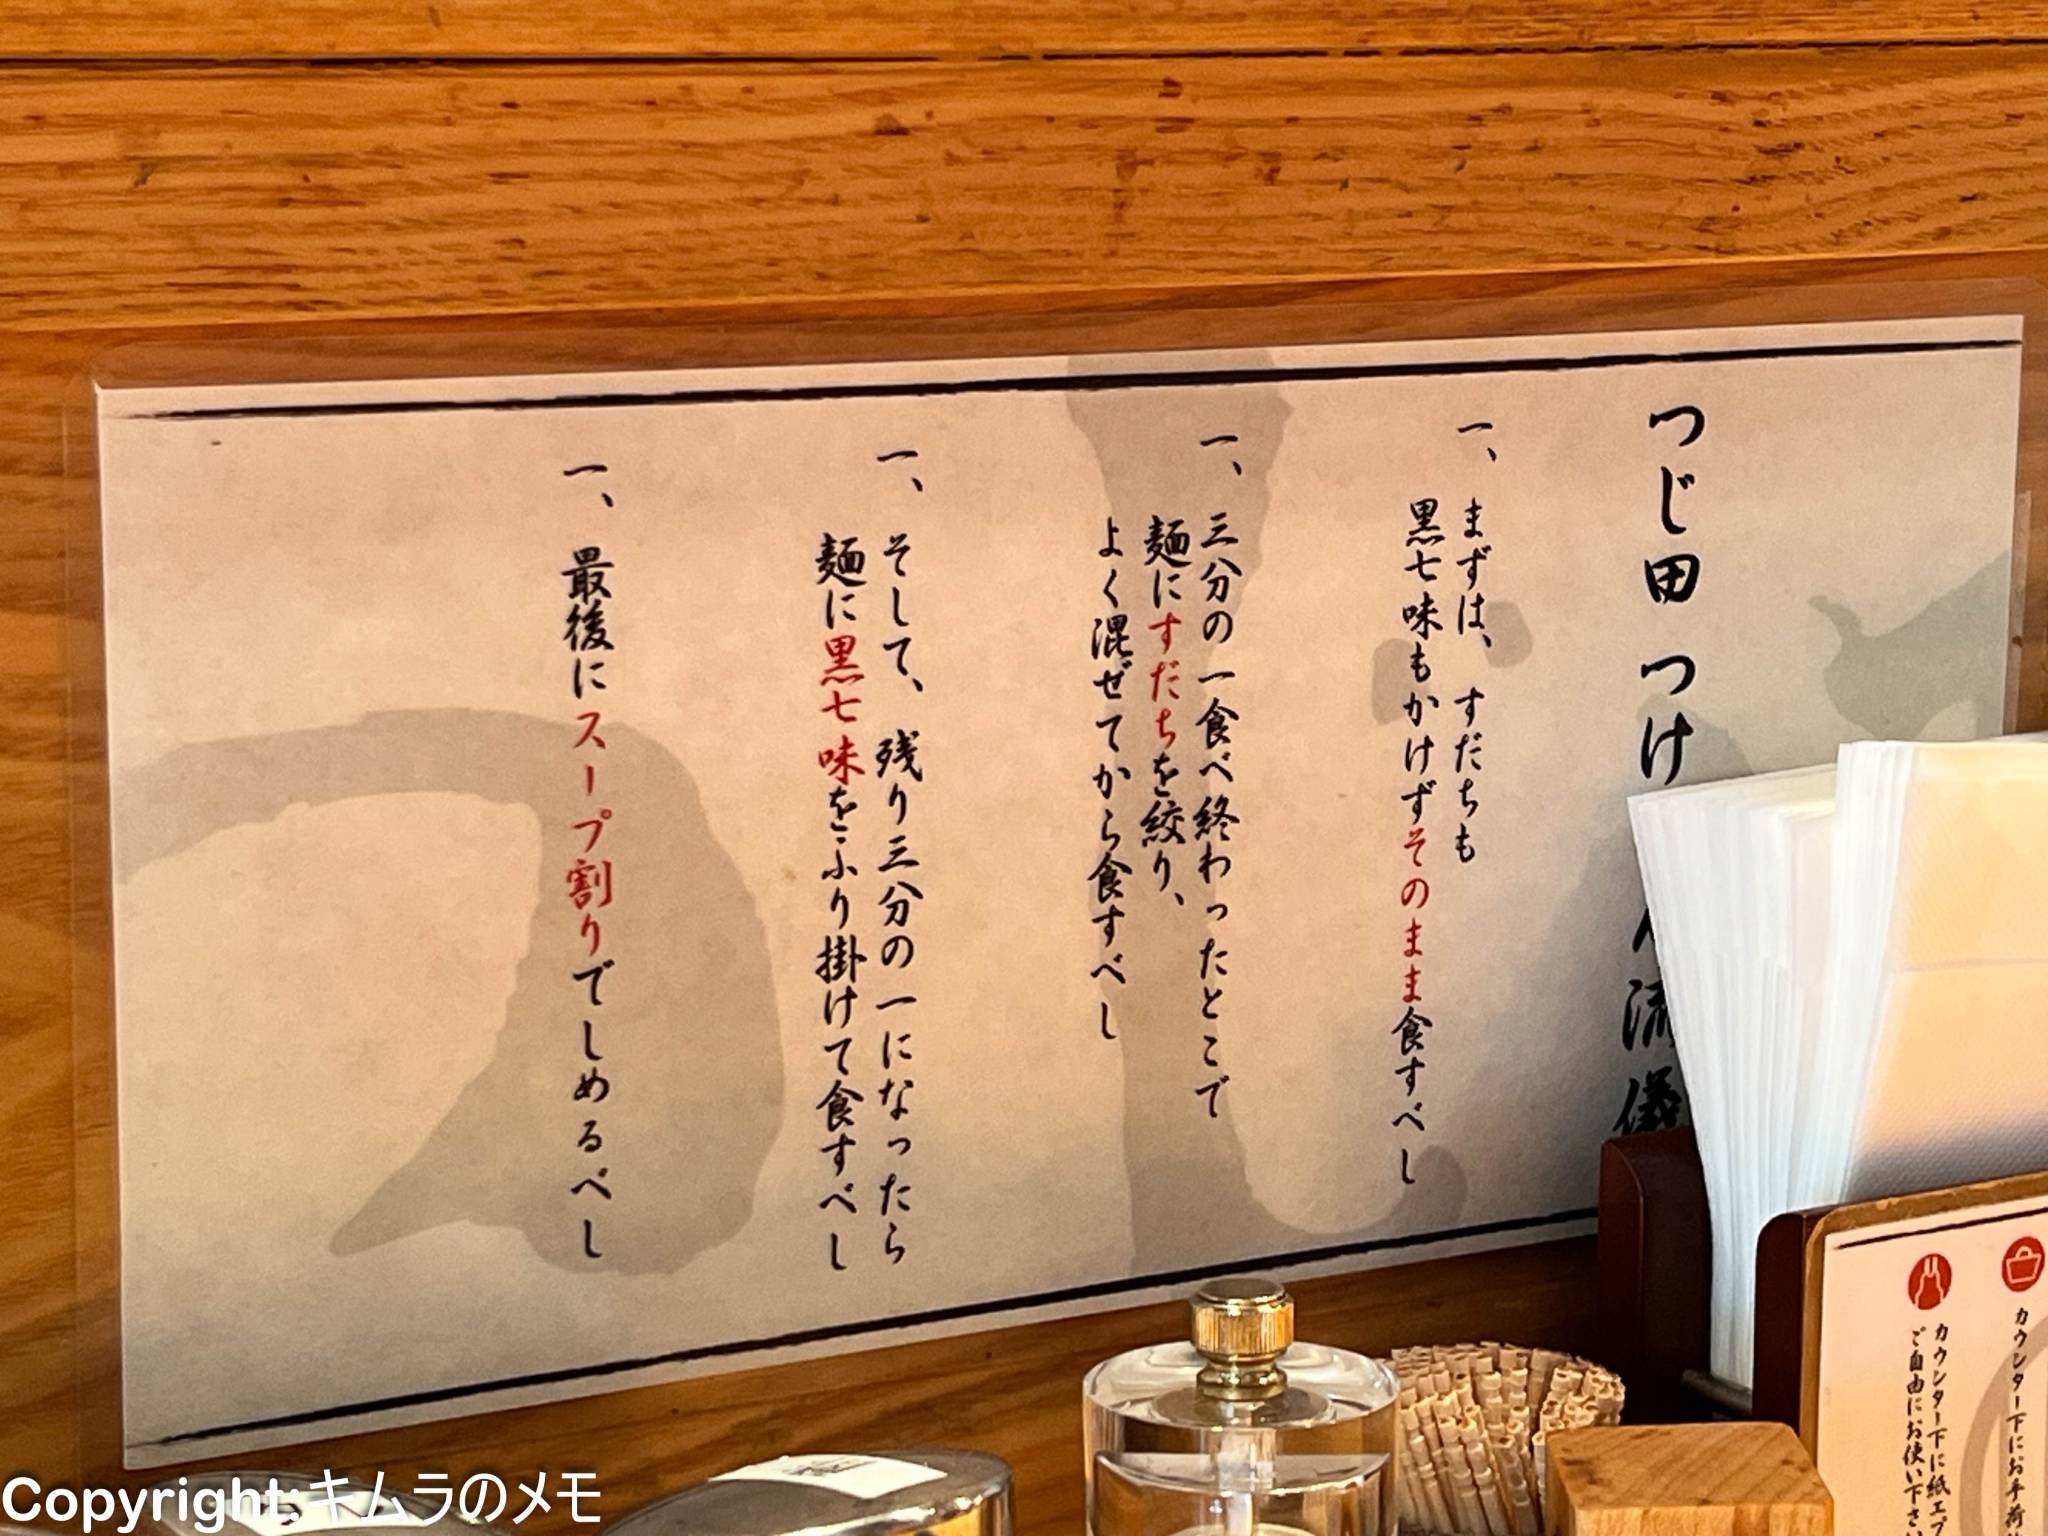 つじ田 つけ
流儀
一、まずは、すだちも
黒七味もかけずそのまま食すべし
一、三分の一食べ終わったとこで
麺にすだちを絞り、
よく混ぜてから食すべし
一、そして、残り三分の一になったら
麺に黒七味をふり掛けて食すべし
一、最後にスープ割りでしめるべし
カウンター下にお手荷
カウンター下に紙エプ
ご自由にお使い下さ
Copyright:キムラのメモ